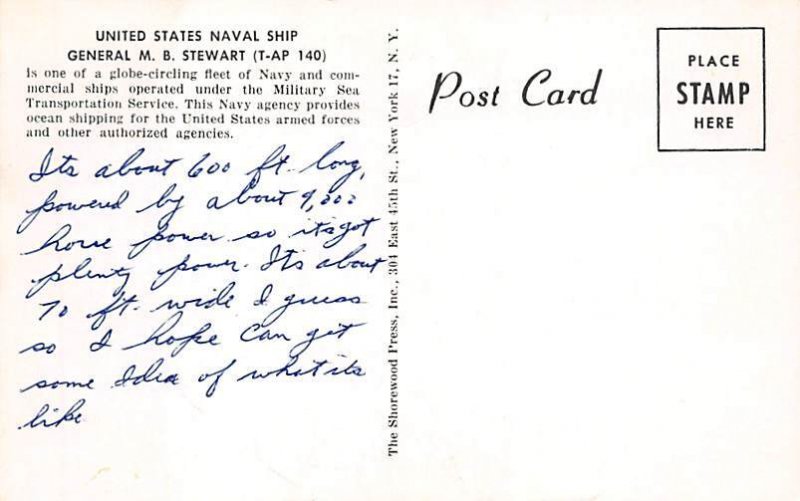 UNITED STATES NAVAL SHIP
GENERAL M. B. STEWART (T-AP 140)
is one of a globe-circling fleet of Navy and com-
mercial ships operated under the Military Sea
Transportation Service. This Navy agency provides
ocean shipping for the United States armed forces
and other authorized agencies.
Its about 600 ft. long,
powered by about 9,000
horse power so its got
plenty power. Its about
70 ft. wide I guess
so I hope can get
some Idea of what its
like
The Shorewood Press, Inc., 304 East 45th St., New York 17, N. Y.
Post Card
PLACE
STAMP
HERE